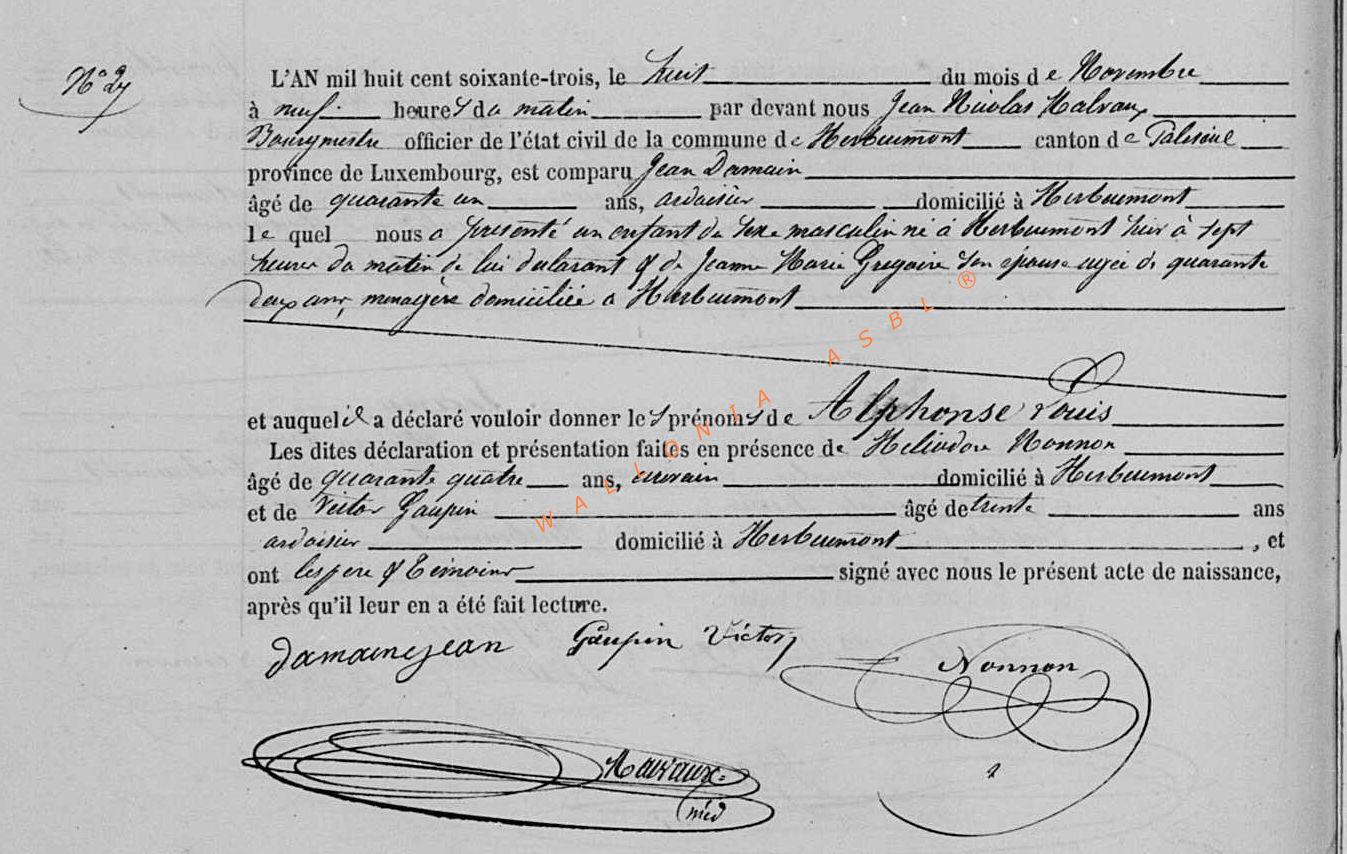 N° 27
L'AN mil huit cent soixante-trois, le huit du mois de Novembre
à neuf heures du matin par devant nous Jean Nicolas Malvaux
Bourgmestre officier de l'état civil de la commune de Herbeumont canton de Paliseul
province de Luxembourg, est comparu Jean Damain
âgé de quarante un ans, ardoisier domicilié à Herbeumont
lequel nous a présenté un enfant du sexe masculin né à Herbeumont hier à sept
heures du matin de lui déclarant & de Jeanne Marie Gregoire son épouse agée de quarante
deux ans, menagère domiciliée a Herbeumont
et auquel il a déclaré vouloir donner les prénoms de Alphonse Louis
Les dites déclaration et présentation faites en présence de Heliodore Nonnon
âgé de quarante quatre ans, domicilié à Herbeumont
et de Victor Gaupin âgé de trente ans
ardoisier domicilié à Herbeumont, et
ont les pere & Temoins signé avec nous le présent acte de naissance,
après qu'il leur en a été fait lecture.
damain jean Gaupin Victor Nonnon
Malvaux
méd
WALLONIA ASBL ®